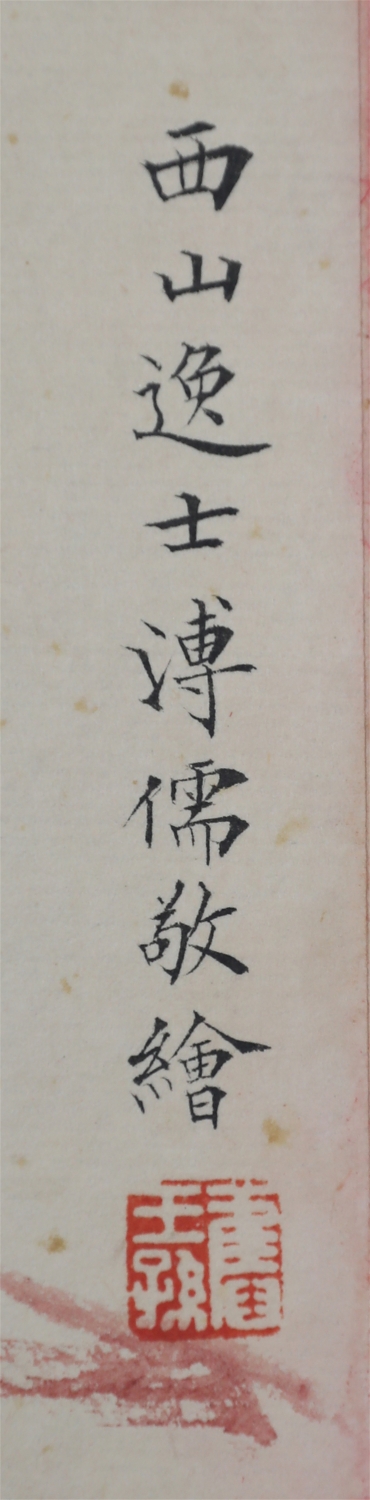 西山逸士溥儒敬繪
舊
王孫